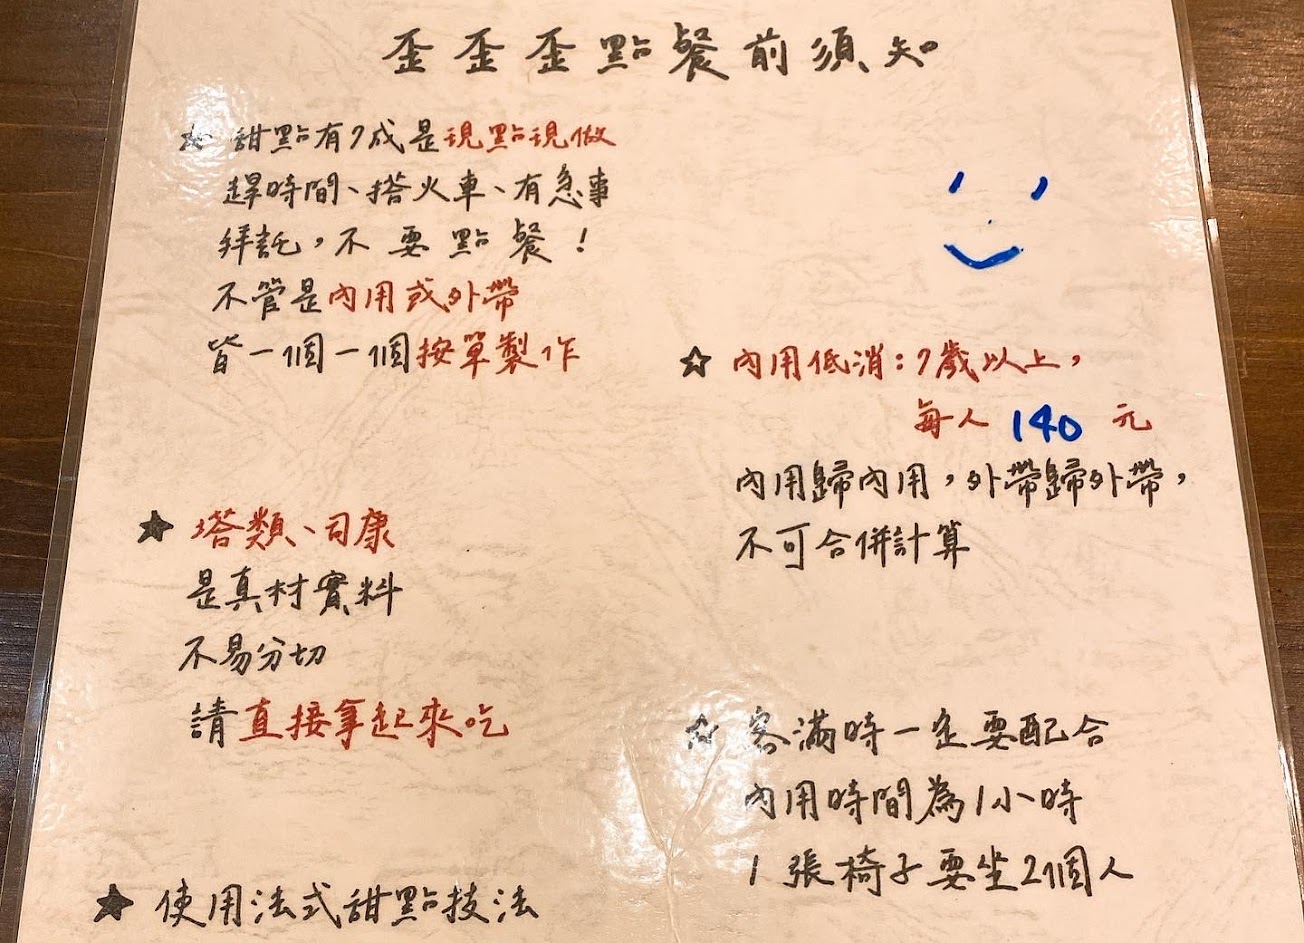 歪歪歪點餐前須知
☆ 甜點有7成是現點現做
趕時間、搭火車、有急事
拜託,不要點餐!
不管是內用或外帶
皆一個一個按單製作
★ 塔類、司康
是真材實料
不易分切
請直接拿起來吃
★ 使用法式甜點技法
☆ 內用低消:7歲以上,
每人 140 元
內用歸內用,外帶歸外帶,
不可合併計算
☆ 客滿時一定要配合
內用時間為1小時
1張椅子要坐2個人